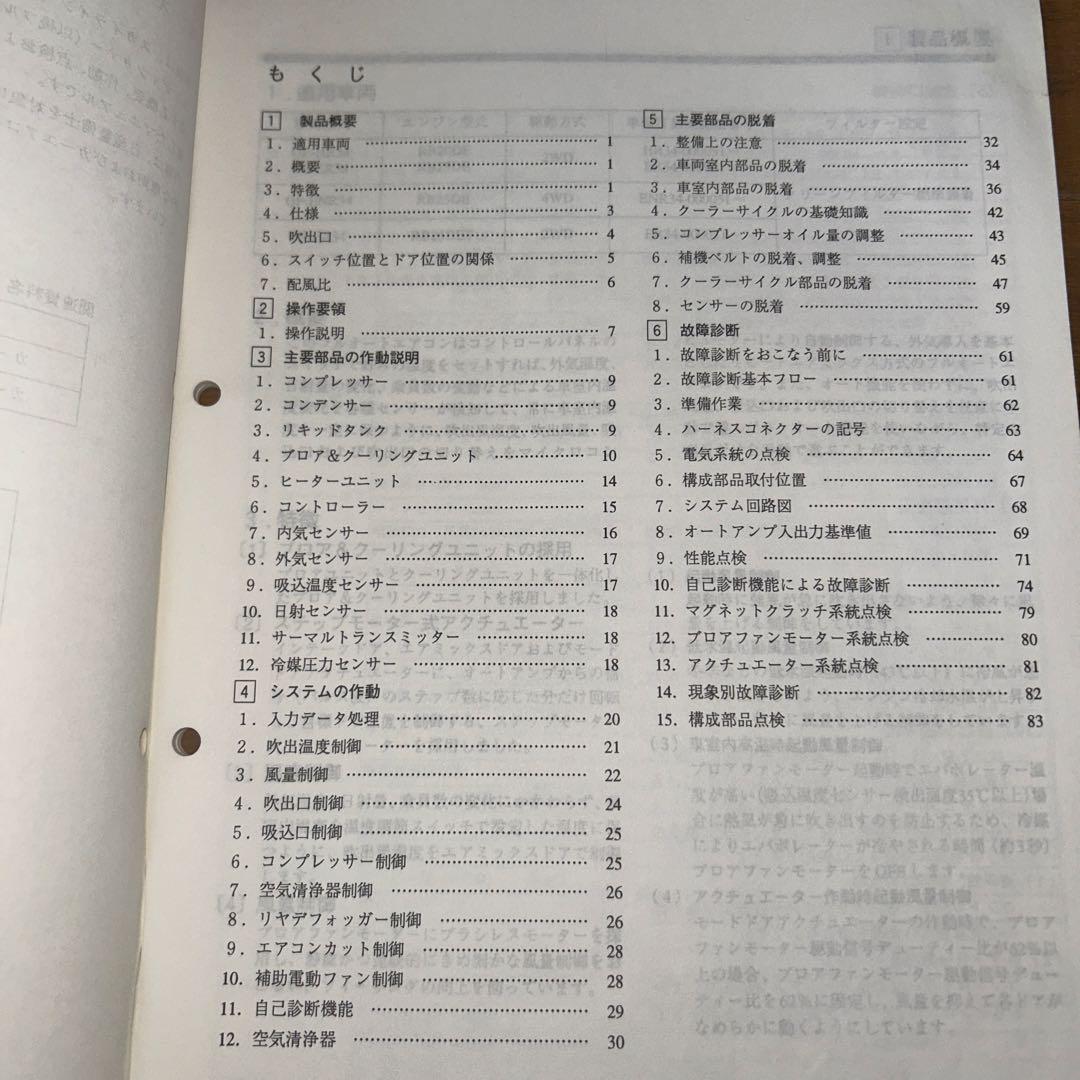 もくじ
1 製品概要
1. 適用車両 1
2. 概要 1
3. 特徴 1
4. 仕様 3
5. 吹出口 4
6. スイッチ位置とドア位置の関係 5
7. 配風比 6
2 操作要領
1. 操作説明 7
3 主要部品の作動説明
1. コンプレッサー 9
2. コンデンサー 9
3. リキッドタンク 9
4. ブロア&クーリングユニット 10
5. ヒーターユニット 14
6. コントローラー 15
7. 内気センサー 16
8. 外気センサー 17
9. 吸込温度センサー 17
10. 日射センサー 18
11. サーマルトランスミッター 18
12. 冷媒圧力センサー 18
4 システムの作動
1. 入力データ処理 20
2. 吹出温度制御 21
3. 風量制御 22
4. 吹出口制御 24
5. 吸込口制御 25
6. コンプレッサー制御 25
7. 空気清浄器制御 26
8. リヤデフォッガー制御 26
9. エアコンカット制御 28
10. 補助電動ファン制御 28
11. 自己診断機能 29
12. 空気清浄器 30
5 主要部品の脱着
1. 整備上の注意 32
2. 車両室内部品の脱着 34
3. 車室内部品の脱着 36
4. クーラーサイクルの基礎知識 42
5. コンプレッサーオイル量の調整 43
6. 補機ベルトの脱着、調整 45
7. クーラーサイクル部品の脱着 47
8. センサーの脱着 59
6 故障診断
1. 故障診断をおこなう前に 61
2. 故障診断基本フロー 61
3. 準備作業 62
4. ハーネスコネクターの記号 63
5. 電気系統の点検 64
6. 構成部品取付位置 67
7. システム回路図 68
8. オートアンプ入出力基準値 69
9. 性能点検 71
10. 自己診断機能による故障診断 74
11. マグネットクラッチ系統点検 79
12. ブロアファンモーター系統点検 80
13. アクチュエーター系統点検 81
14. 現象別故障診断 82
15. 構成部品点検 83